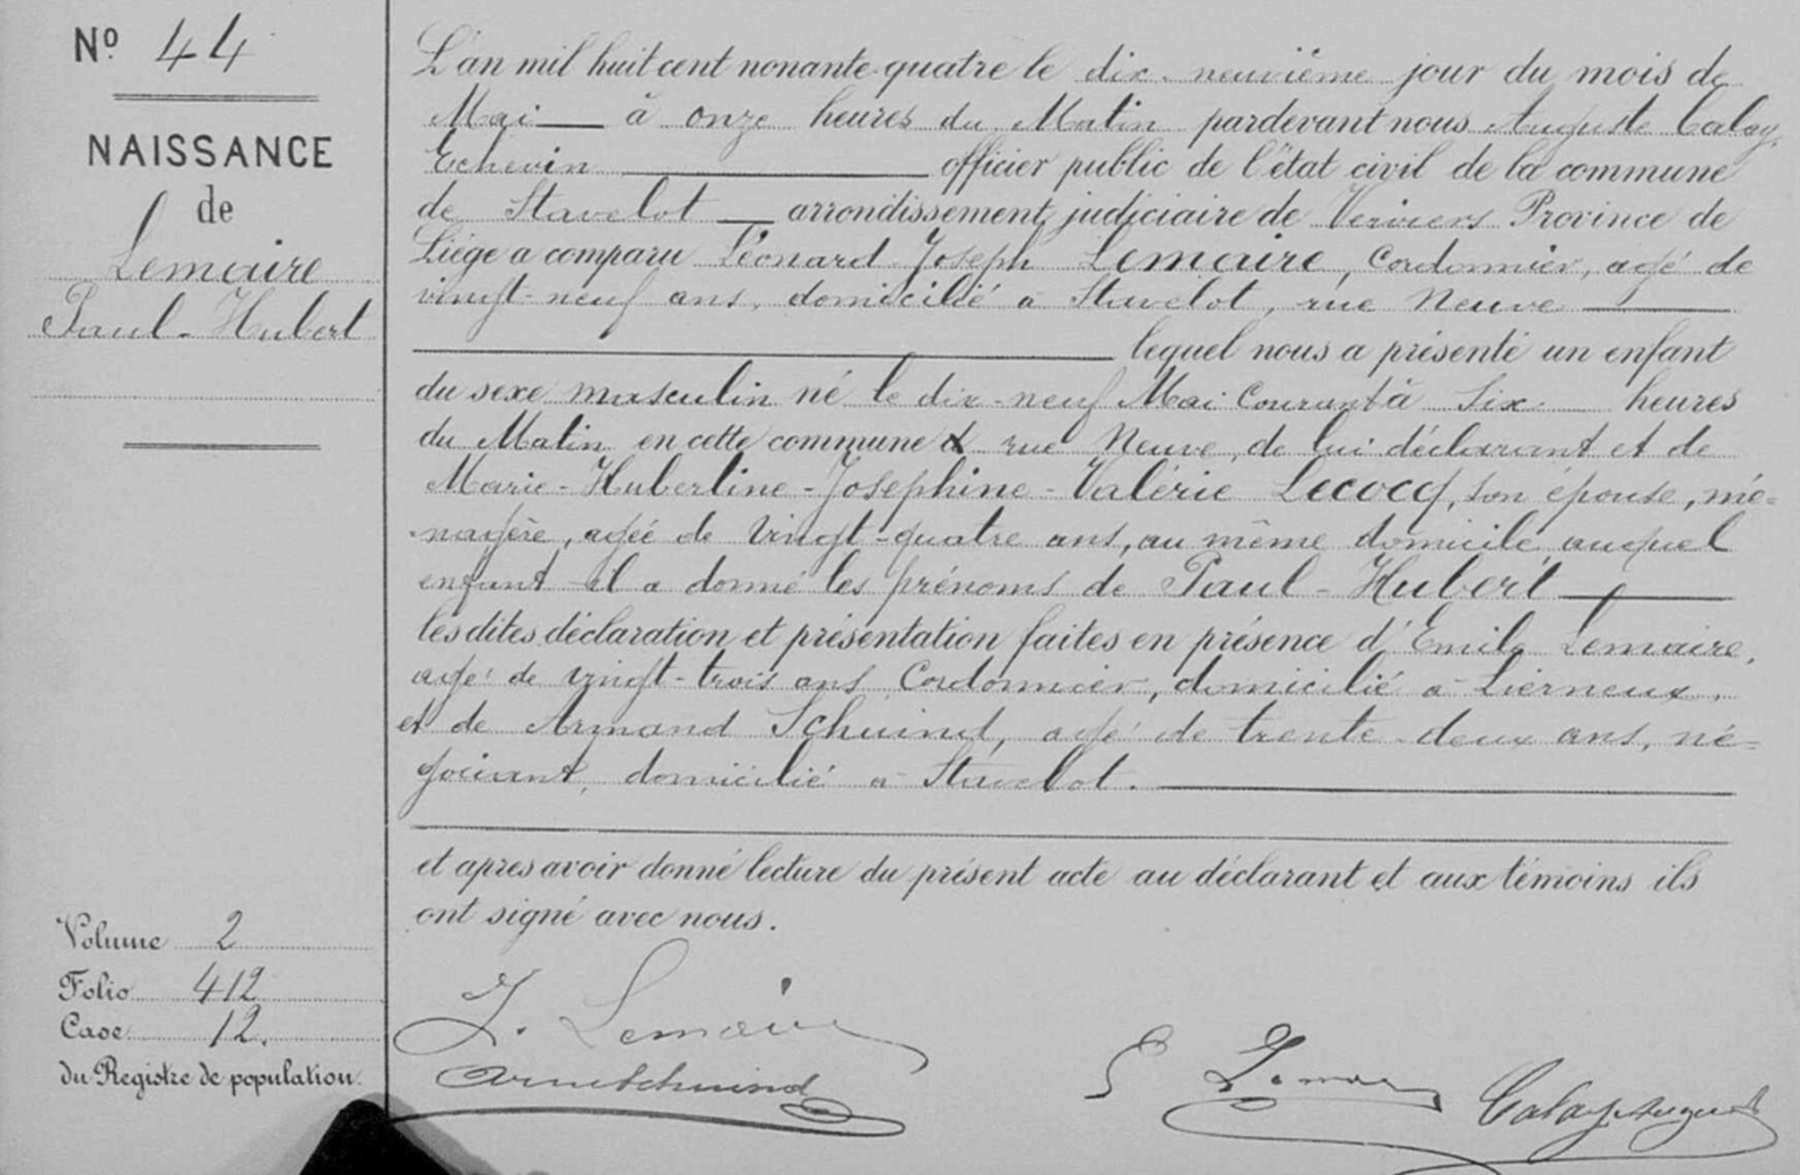 Nº 44
NAISSANCE
de
Lemaire
Paul-Hubert
Volume 2
Folio 412
Case 12.
du Registre de population.
L'an mil huit cent nonante-quatre le dix-neuvième jour du mois de
Mai à onze heures du Matin pardevant nous Auguste Calay,
Echevin officier public de l'état civil de la commune
de Stavelot arrondissement judiciaire de Verviers Province de
Liége a comparu Léonard-Joseph Lemaire, Cordonnier, agé de
vingt-neuf ans, domicilié à Stavelot, rue Neuve
lequel nous a présenté un enfant
du sexe masculin né le dix-neuf Mai Courant à Six heures
du Matin en cette commune rue Neuve, de lui déclarant et de
Marie-Hubertine-Joséphine-Valérie Lecocq, son épouse, mé-
-nagère, agée de vingt-quatre ans, au même domicile, auquel
enfant il a donné les prénoms de Paul-Hubert
les dites déclaration et présentation faites en présence d'Emile Lemaire,
agé de vingt-trois ans Cordonnier, domicilié à Lierneux,
et de Armand Schuind, agé de trente-deux ans, né-
gociant, domicilié à Stavelot.
et apres avoir donné lecture du présent acte au déclarant et aux témoins ils
ont signé avec nous.
J. Lemaire
Arm Schuind
E Lemaire
Calay Auguste